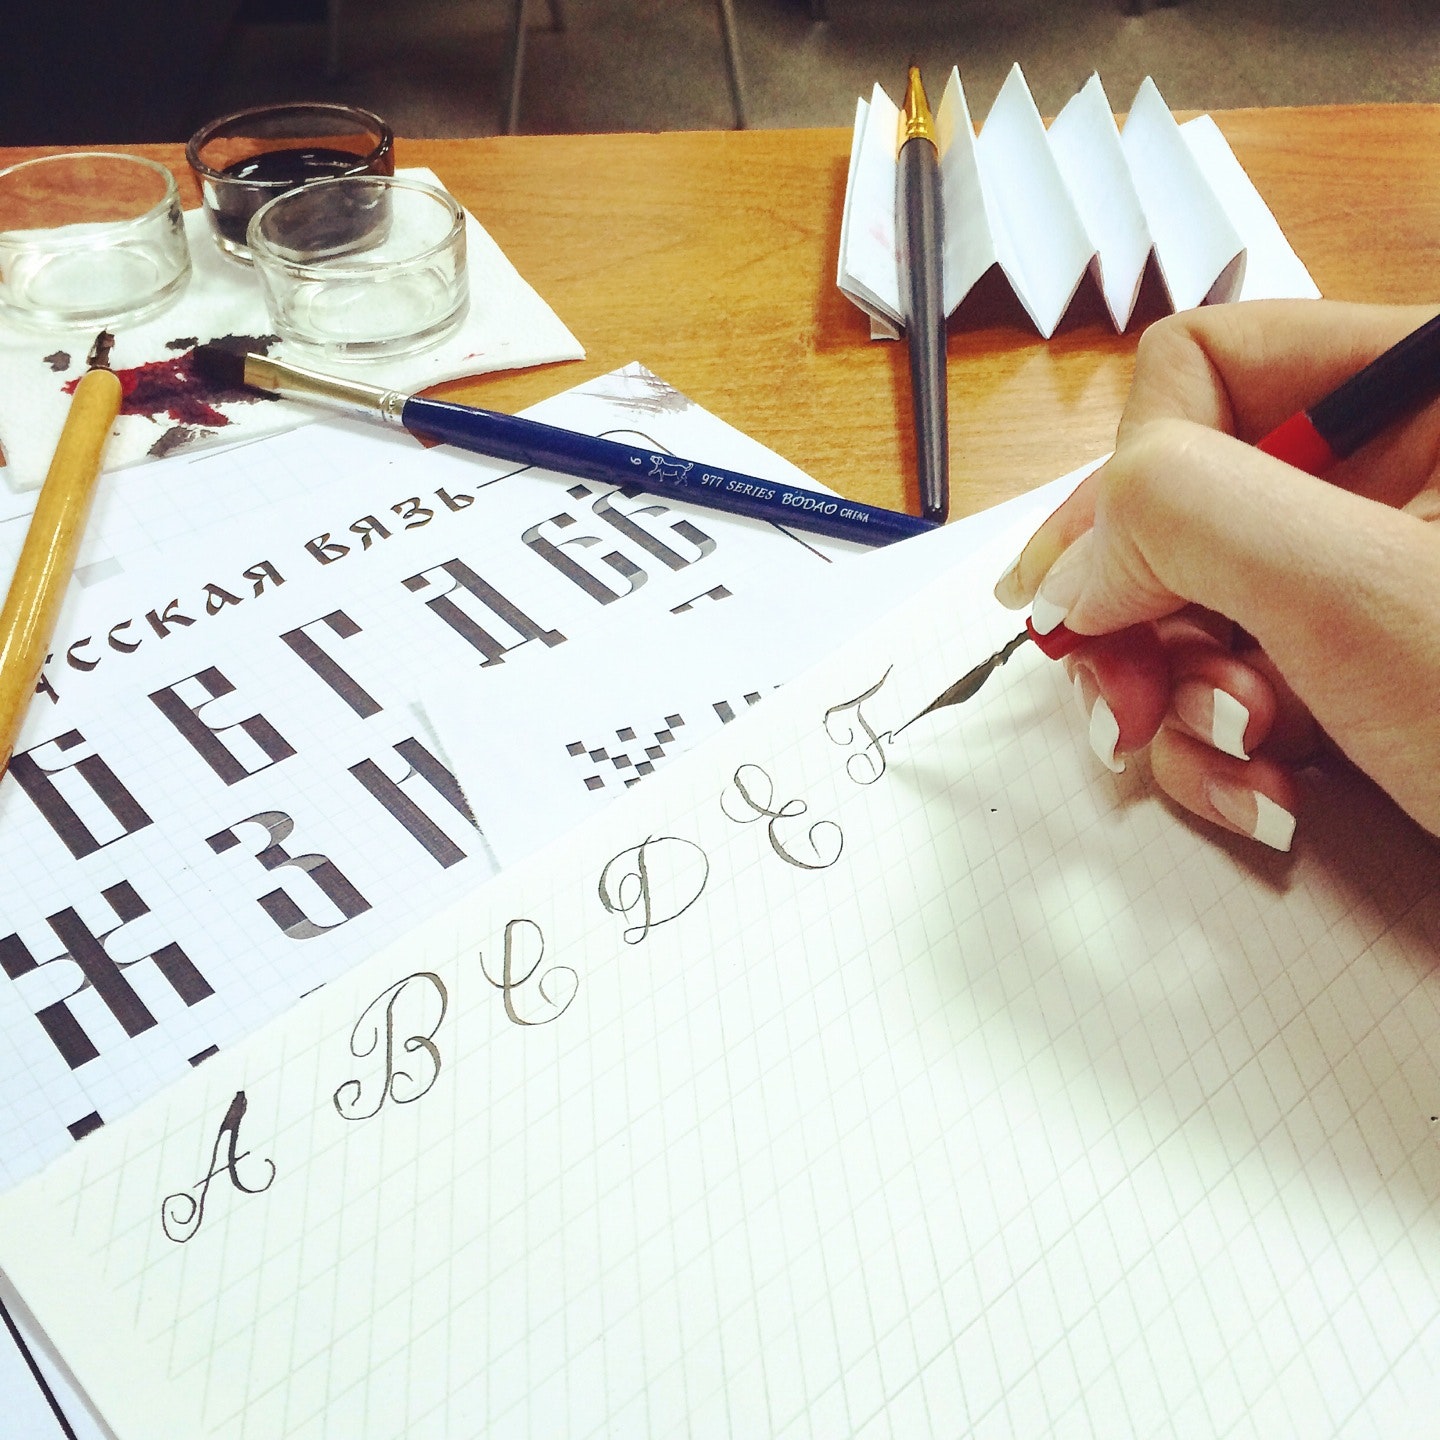 6 977 SERIES BÖDAO CHINA
РУССКАЯ ВЯЗЬ
Б В Г Д Є Е
Ж З И
A B C D E F